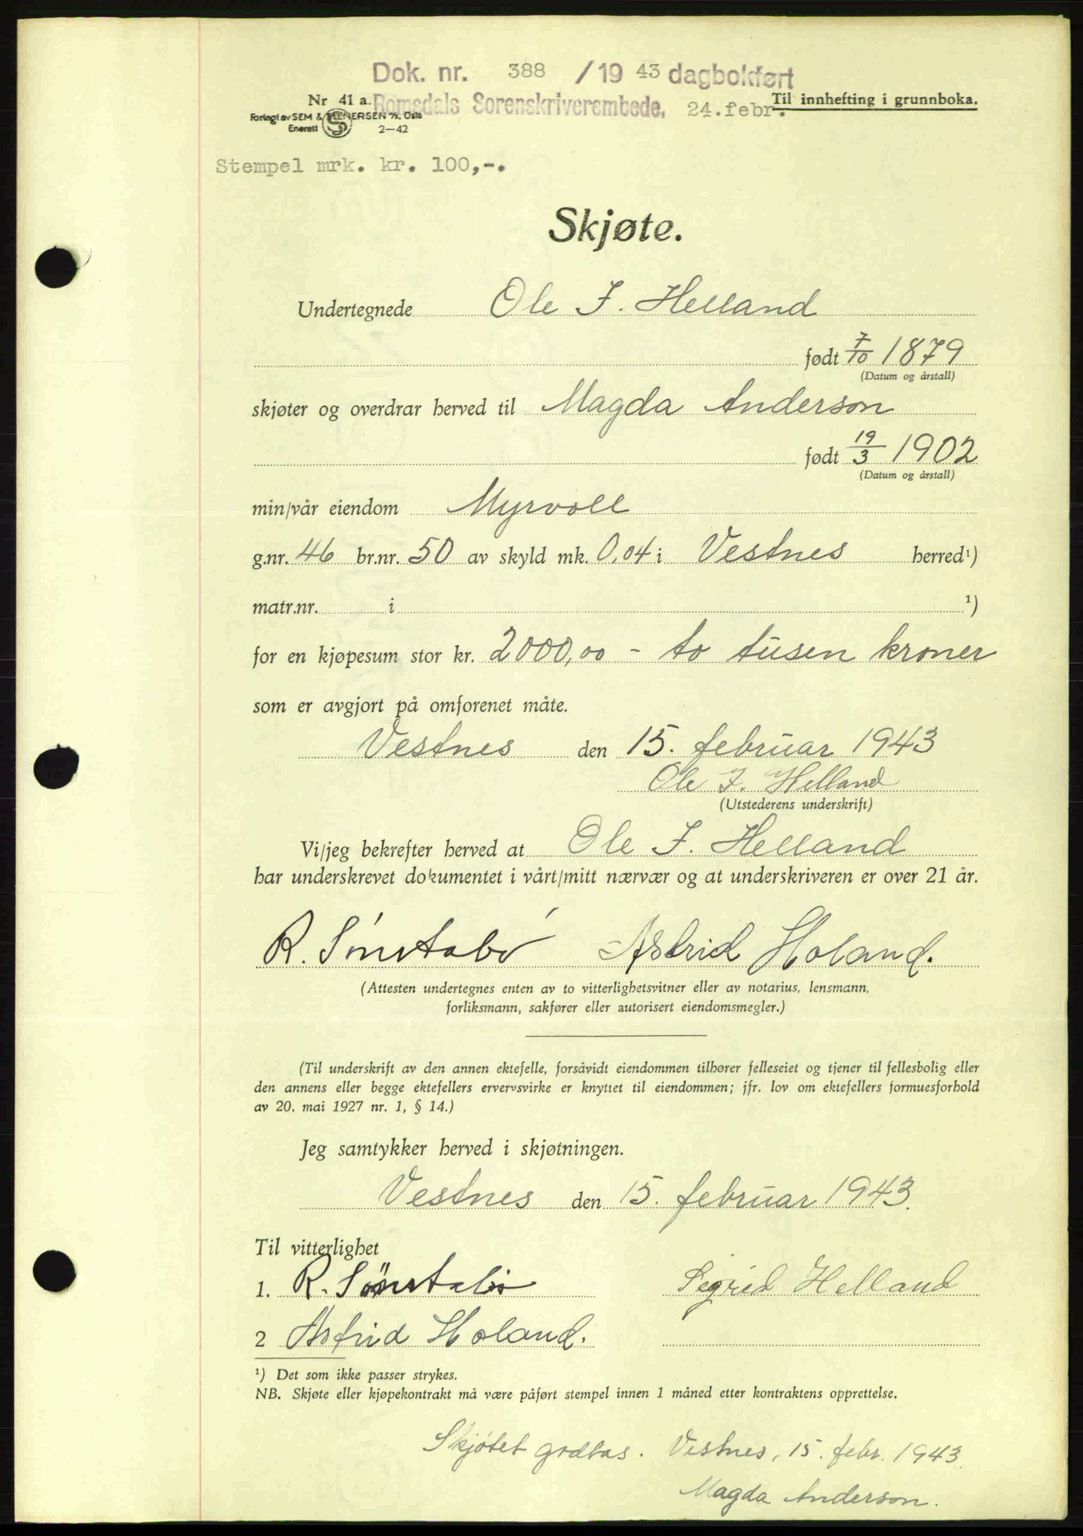 Dok. nr. 388 / 19 43 dagbokført
Nr 41 a. Romsdals Sorenskriverembede, 24.febr. Til innhefting i grunnboka.
Forlagt av SEM & STENERSEN A/S, Oslo
Enerett 2-42
Stempel mrk. kr. 100,-.
Skjøte.
Undertegnede Ole J. Helland
født 7/10 1879
(Datum og årstall)
skjøter og overdrar herved til Magda Anderson
født 19/3 1902
(Datum og årstall)
min/vår eiendom Myrvoll
g.nr. 46 br.nr. 50 av skyld mk. 0,04 i Vestnes herred¹)
matr.nr. i ¹)
for en kjøpesum stor kr. 2000,00 - to tusen kroner
som er avgjort på omforenet måte.
Vestnes den 15. februar 1943
Ole J. Helland
(Utstederens underskrift)
Vi/jeg bekrefter herved at Ole J. Helland
har underskrevet dokumentet i vårt/mitt nærvær og at underskriveren er over 21 år.
R. Sønstabø Astrid Holand.
(Attesten undertegnes enten av to vitterlighetsvitner eller av notarius, lensmann,
forliksmann, sakfører eller autorisert eiendomsmegler.)
(Til underskrift av den annen ektefelle, forsåvidt eiendommen tilhører felleseiet og tjener til fellesbolig eller
den annens eller begge ektefellers ervervsvirke er knyttet til eiendommen; jfr. lov om ektefellers formuesforhold
av 20. mai 1927 nr. 1, § 14.)
Jeg samtykker herved i skjøtningen.
Vestnes den 15. februar 1943.
Til vitterlighet
1. R. Sønstabø Segrid Helland
2 Astrid Holand.
¹) Det som ikke passer strykes.
NB. Skjøte eller kjøpekontrakt må være påført stempel innen 1 måned etter kontraktens opprettelse.
Skjøtet godtas. Vestnes, 15. febr. 1943.
Magda Anderson.